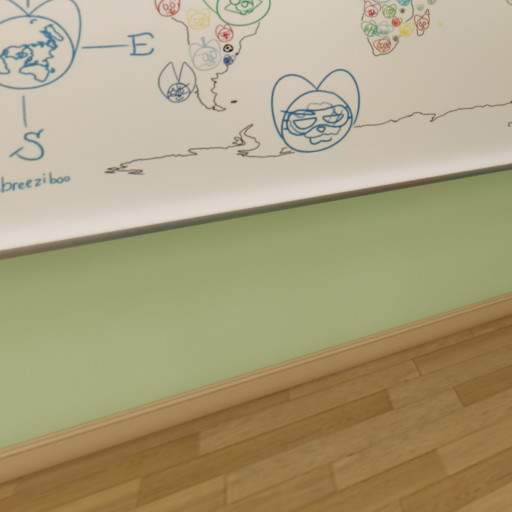 E
S
breeziboo